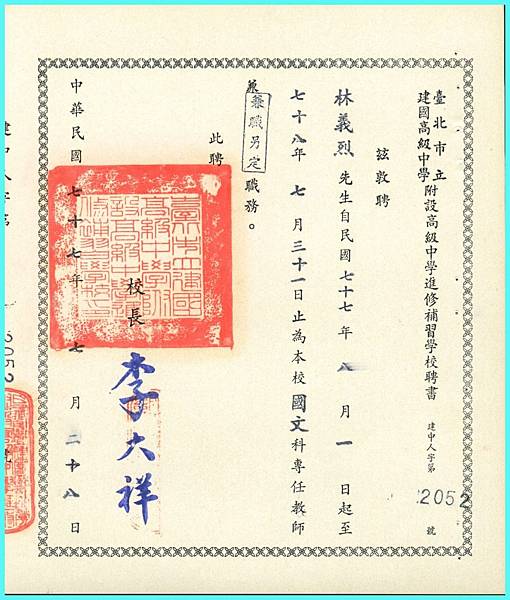 臺北市立
建國高級中學附設高級中學進修補習學校聘書
建中人字第2052號
茲敦聘
林義烈先生自民國七十七年八月一日起至
七十八年七月三十一日止為本校國文科專任教師
兼兼職另定職務。
此聘
校長李大祥
中華民國七十七年七月二十八日
建中人字第
2052